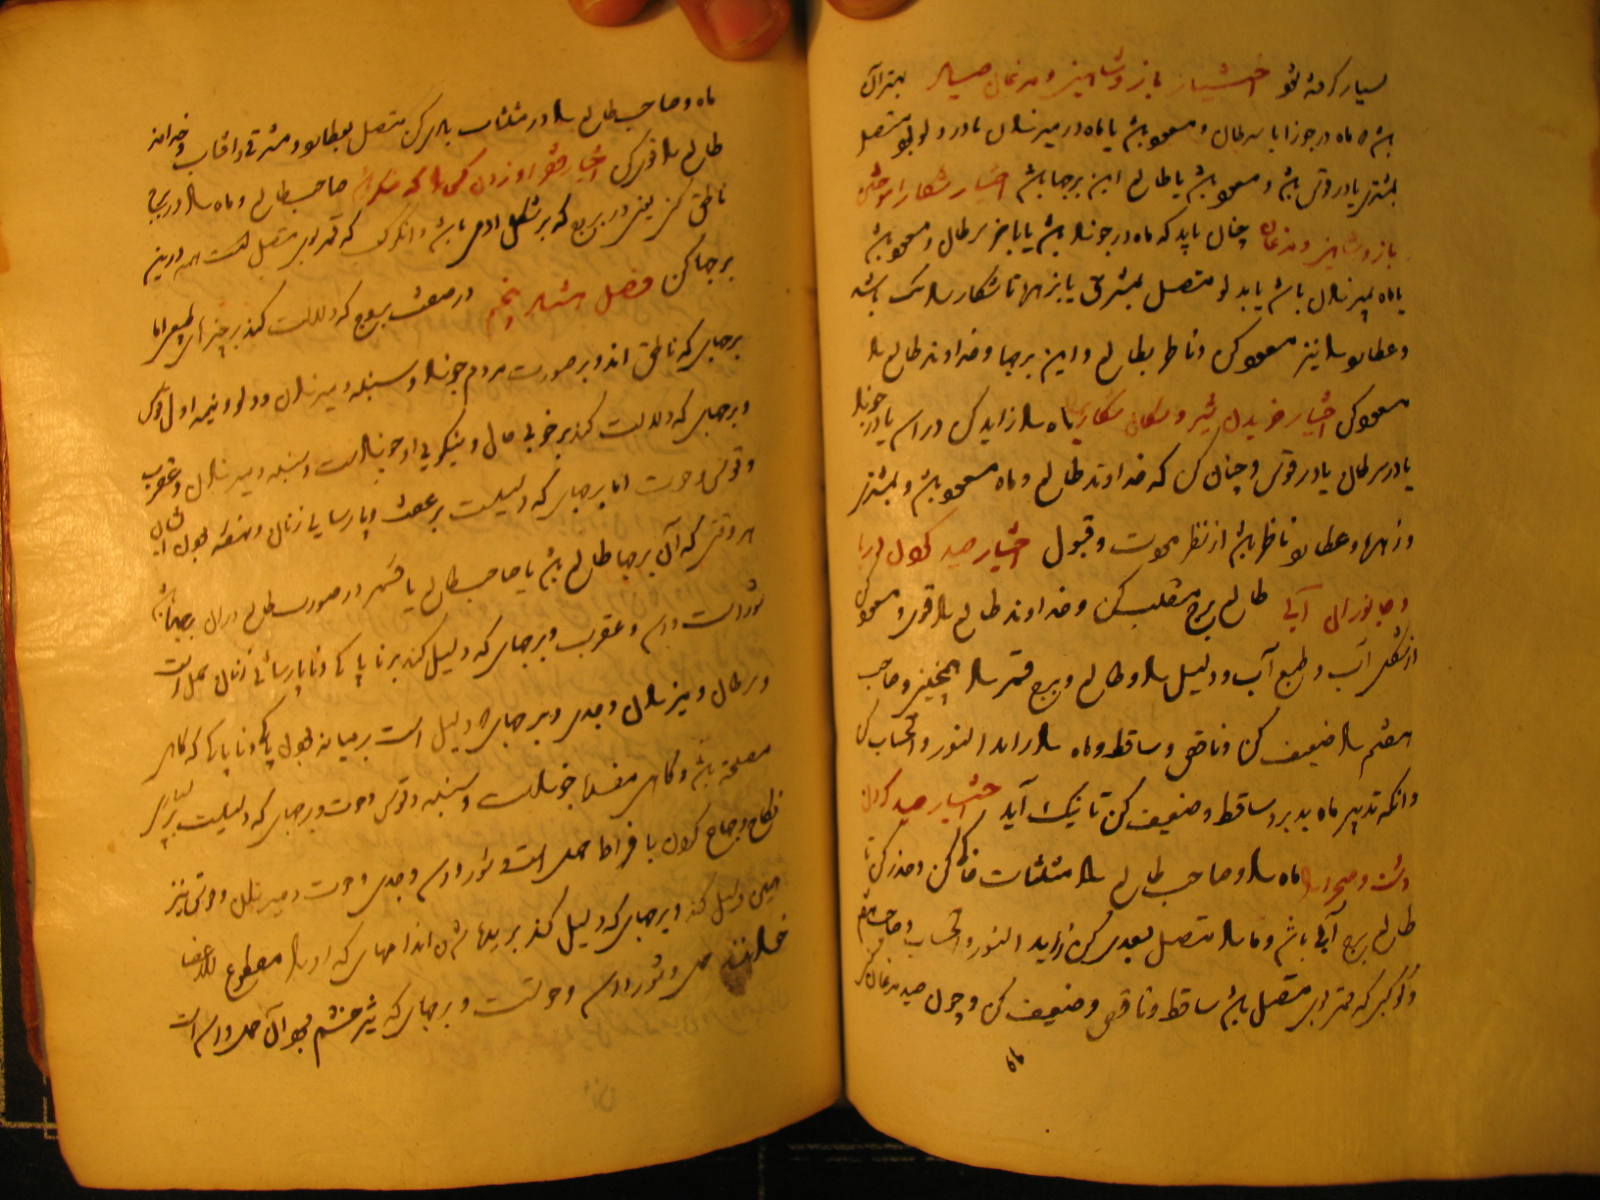 اختیار باز و شاهین و مرغان صیاد بهتر آن
باشد که ماه در جوزا یا سرطان و مسعود باشد یا ماه در میزان یا در دلو بود متصل
بمشتری یا در قوس باشد و مسعود باشد یا طالع این برجها باشد اختیار شکار آموختن
باز و شاهین و مرغان چنان باید که ماه در جوزا باشد یا باخر سرطان و مسعود باشد
یا ماه بمیزان باشد یا بدلو متصل بمشتری یا بزهره تا شکار را نیک باشد
و عطارد را نیز مسعود کن و ناظر بطالع و این برجها و خداوند طالع را
مسعود کن اختیار خریدن و سگان شکاری ماه را زاید کن در اسد یا در جوزا
یا در سرطان یا در قوس و چنان کن که خداوند طالع و ماه مسعود باشد و بمشتری
و زهره و عطارد ناظر باشد از نظر مودت و قبول اختیار صید کردن دریا
و جانوران آبی طالع برج منقلب کن و خداوند طالع را قوی و مسعود کن
از شکل آب و طبع آب و دلیل را و طالع و برج قمر را همچنین و صاحب
هفتم را ضعیف کن و ناقص و ساقط و ماه را زاید النور و الحساب کن
و آنکه تدبیر ماه پذیرد ساقط و ضعیف کن تا نیک آید اختیار صید کردن
دشت و صحرا ماه را و صاحب طالع را در مثلثات خاکی کن و حذر کن تا
طالع برج آبی باشد و ماه را متصل بسعدی کن زاید النور و الحساب و صاحب هفتم
و کوکبی که قمر بدو متصل باشد ساقط و ناقص و ضعیف کن و چون صید مرغان کنی
ماه
ماه و صاحب طالع را در مثلثات بادی کن متصل بعطارد و مشرقی و آفتاب و خداوند
طالع را قوی کن اختیار ماه را در برجی
ناطق کن یعنی در برجی که بر شکل آدمی باشد و آن کوکب که قمر بدو متصل است هم درین
برجها کن فصل هشتاد و پنجم در صفت بروج که دلالت کند بر چیزهای طبیعی اما
برجهای که ناطق اند و بر صورت مردم جوزا و سنبله و میزان و دلو و نیمه اول قوس
و برجهای که دلالت کند بر خوبی حال و نیکویی او جوزاست و سنبله و میزان و عقرب
و قوس و حوت اما برجهای که دلیلست بر عفت و پارسایی زنان و نهفته بودن ایشان
هر وقتی که آن برجها طالع باشد یا صاحب طالع یا قمر در صورت طالع در آن برجها باشد
ثور است و اسد و عقرب و برجهای که دلیل کند بر ناپاکی و ناپارسائی زنان حمل است
و سرطان و میزان و جدی و برجهای که دلیل است بر میانه بودن پاکی و ناپاکی که گاهی
مصلحه باشد و گاهی مفسده جوزاست و سنبله و قوس و حوت و برجهای که دلیلست بر بسیاری
نکاح و جماع کردن بافراط حمل است و ثور و اسد و جدی و حوت و میزان
همین دلیل کند و برجهای که دلیل کند بر اندامهای که او را مقطوع الاعضا
خوانند حمل و ثور و اسد و حوتست و برجهای که تیز خشم بود آن حمل و اسد است